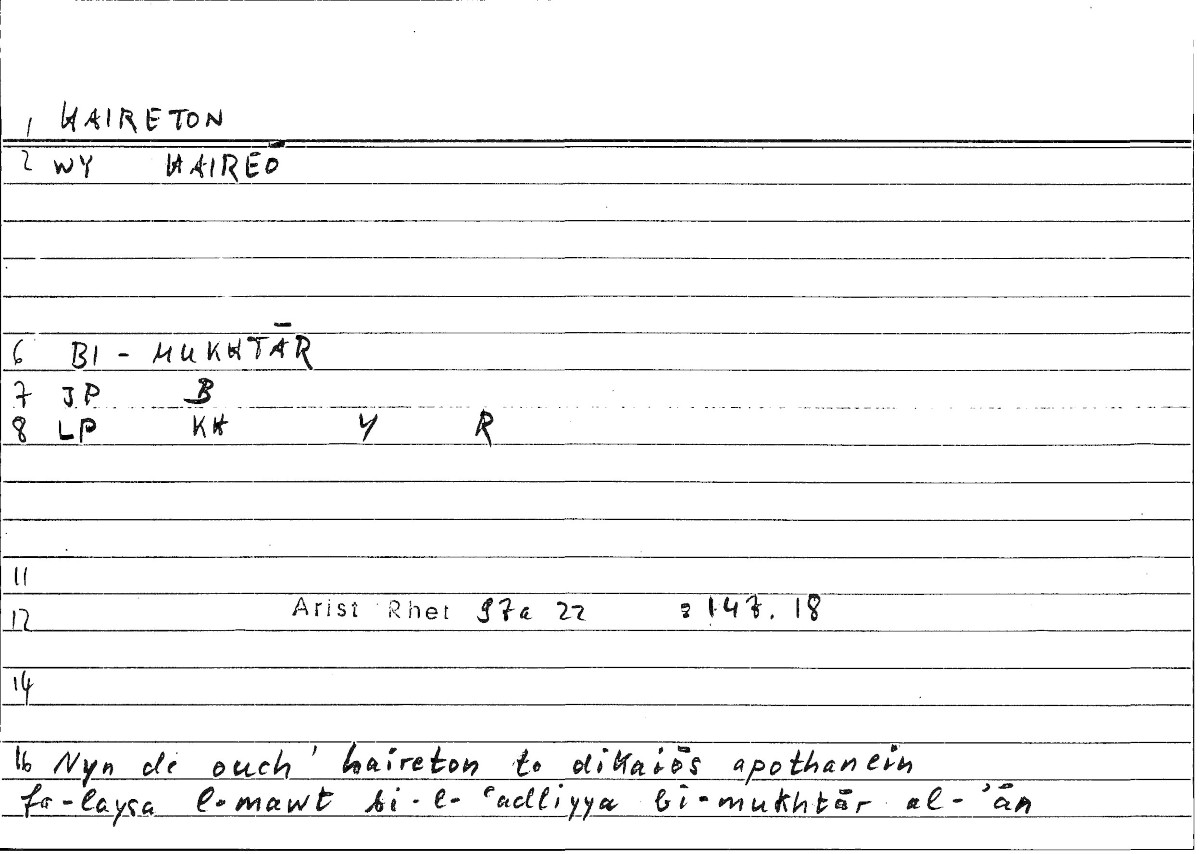 1 HAIRETON
2 WY HAIREŌ
6 BI - MUKHTĀR
7 JP B
8 LP KH Y R
11
12 Arist Rhet 97a 22 = 147. 18
14
16 Nyn de ouch' haireton to dikaiōs apothanein
fa-laysa l-mawt bi-l-ʿadliyya bi-mukhtār al-ʾān